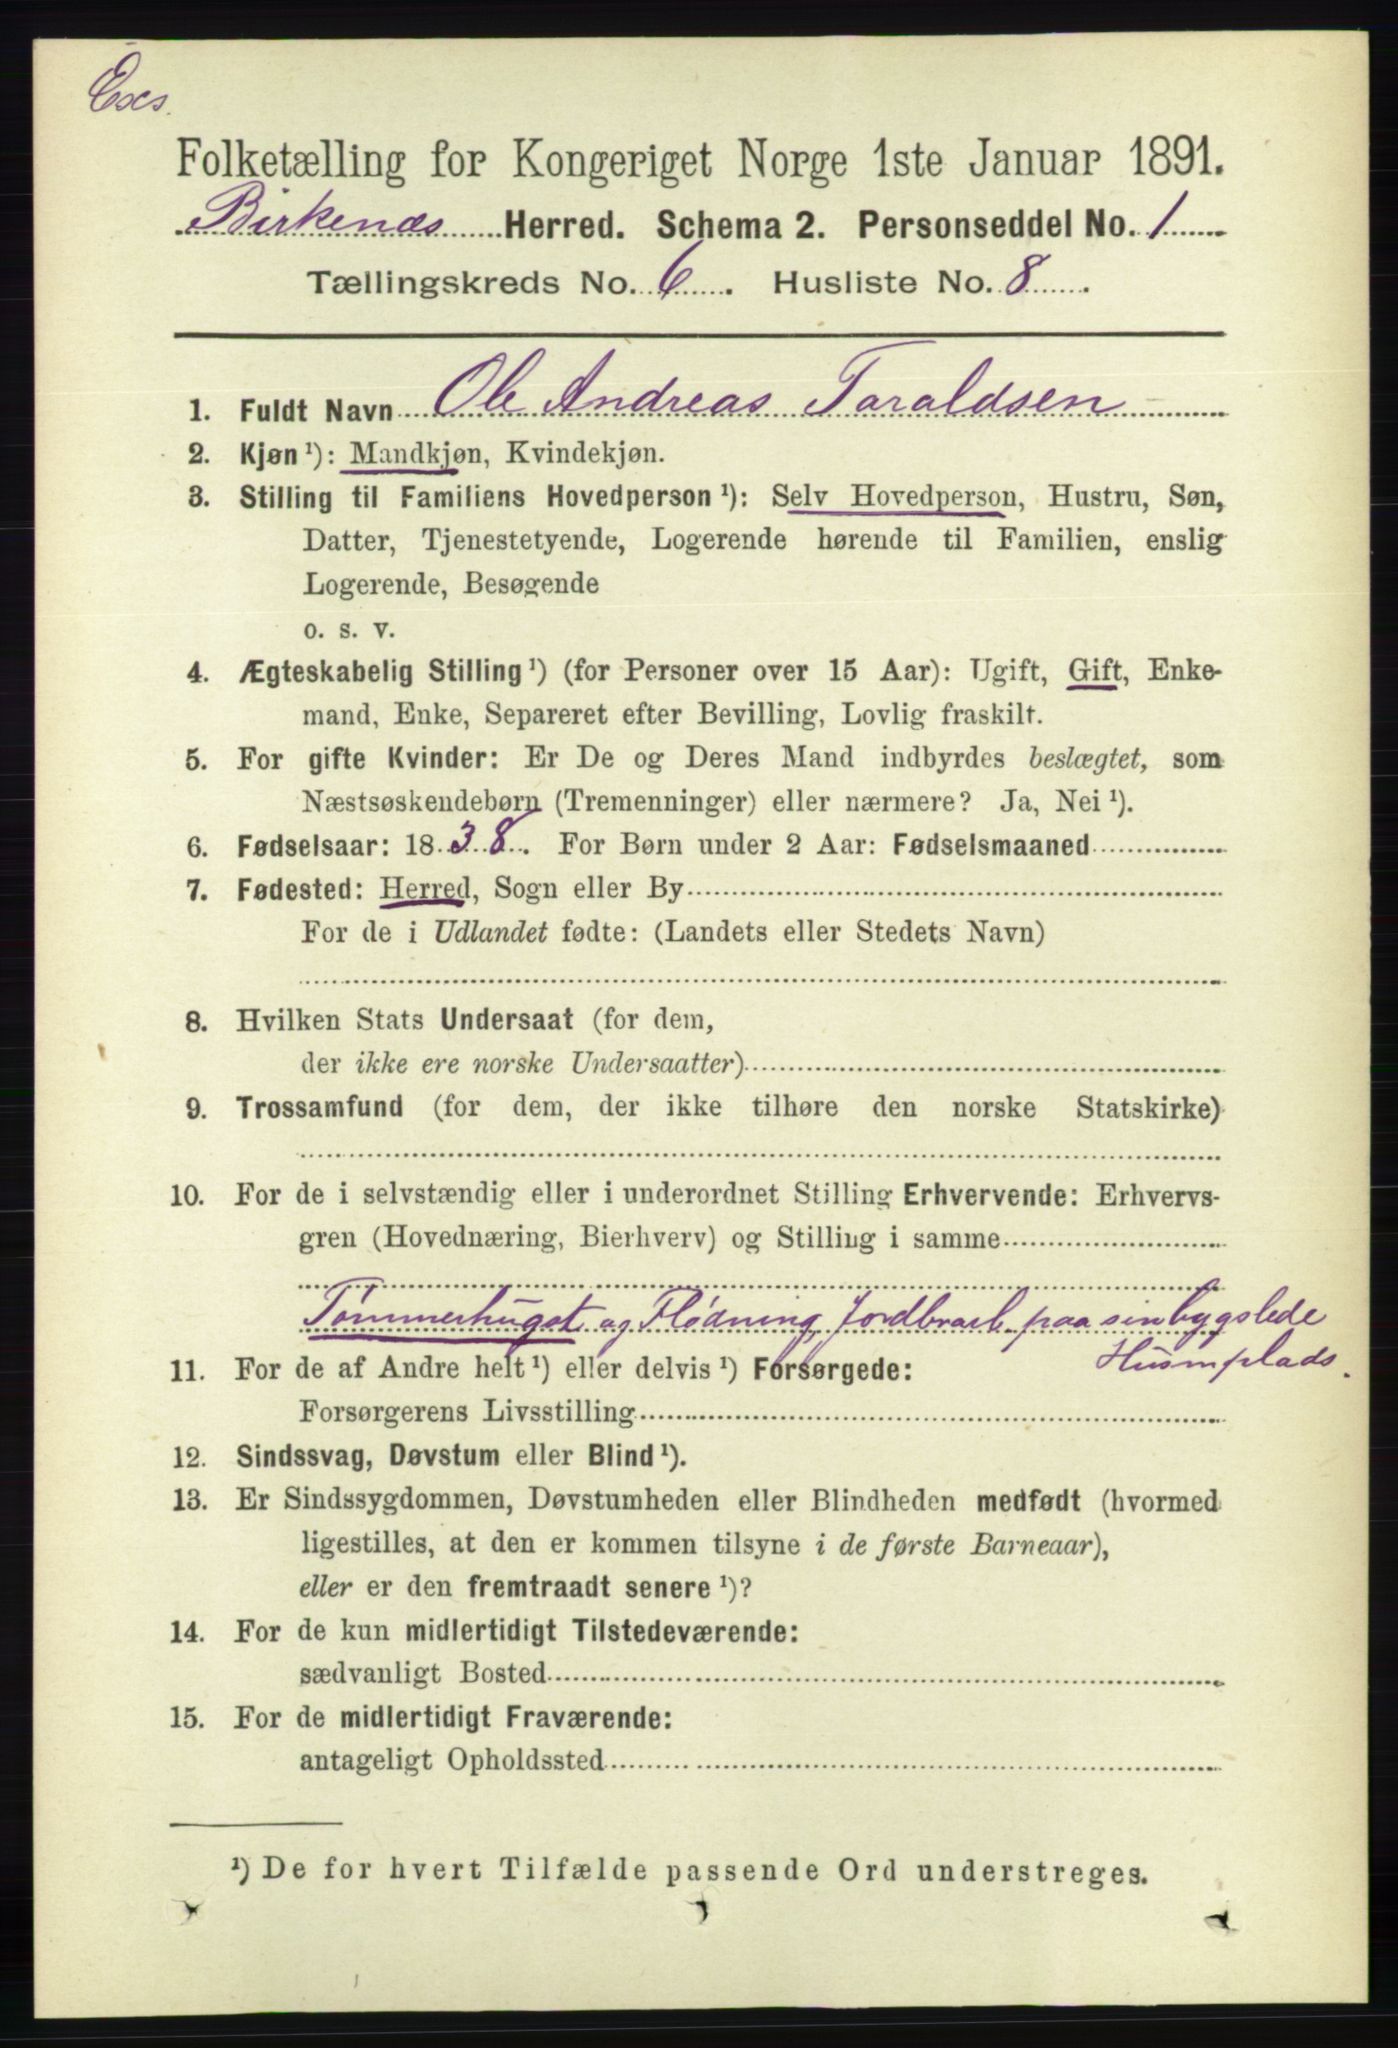 Folketælling for Kongeriget Norge 1ste Januar 1891.
Birkenæs Herred. Schema 2. Personseddel No. 1
Tællingskreds No. 6. Husliste No. 8.
1. Fuldt Navn Ole Andreas Taraldsen
2. Kjøn ¹): Mandkjøn, Kvindekjøn.
3. Stilling til Familiens Hovedperson ¹): Selv Hovedperson, Hustru, Søn,
Datter, Tjenestetyende, Logerende hørende til Familien, enslig
Logerende, Besøgende
o. s. v.
4. Ægteskabelig Stilling ¹) (for Personer over 15 Aar): Ugift, Gift, Enke-
mand, Enke, Separeret efter Bevilling, Lovlig fraskilt.
5. For gifte Kvinder: Er De og Deres Mand indbyrdes beslægtet, som
Næstsøskendebørn (Tremenninger) eller nærmere? Ja, Nei ¹).
6. Fødselsaar: 1838. For Børn under 2 Aar: Fødselsmaaned
7. Fødested: Herred, Sogn eller By
For de i Udlandet fødte: (Landets eller Stedets Navn)
8. Hvilken Stats Undersaat (for dem,
der ikke ere norske Undersaatter)
9. Trossamfund (for dem, der ikke tilhøre den norske Statskirke)
10. For de i selvstændig eller i underordnet Stilling Erhvervende: Erhvervs-
gren (Hovednæring, Bierhverv) og Stilling i samme
Tømmerhugst og Flødning, Jordbrarb. paa sin bygslede
Husmplads.
11. For de af Andre helt ¹) eller delvis ¹) Forsørgede:
Forsørgerens Livsstilling
12. Sindssvag, Døvstum eller Blind ¹).
13. Er Sindssygdommen, Døvstumheden eller Blindheden medfødt (hvormed
ligestilles, at den er kommen tilsyne i de første Barneaar),
eller er den fremtraadt senere ¹)?
14. For de kun midlertidigt Tilstedeværende:
sædvanligt Bosted
15. For de midlertidigt Fraværende:
antageligt Opholdssted
¹) De for hvert Tilfælde passende Ord understreges.